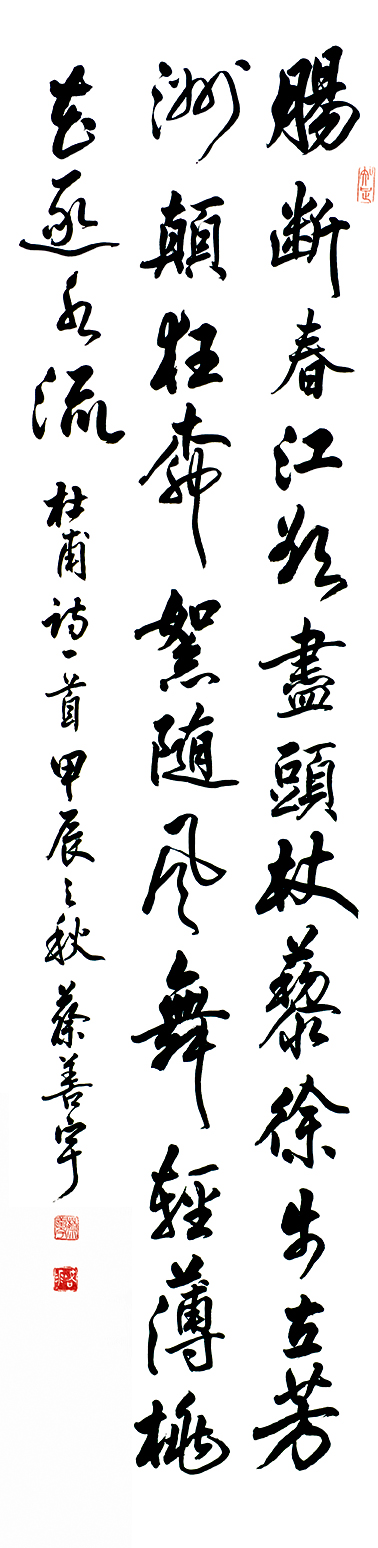 腸斷春江欲盡頭杖藜徐步立芳
洲顛狂柳絮随風舞輕薄桃
花逐水流
杜甫诗一首甲辰之秋蔡善宇